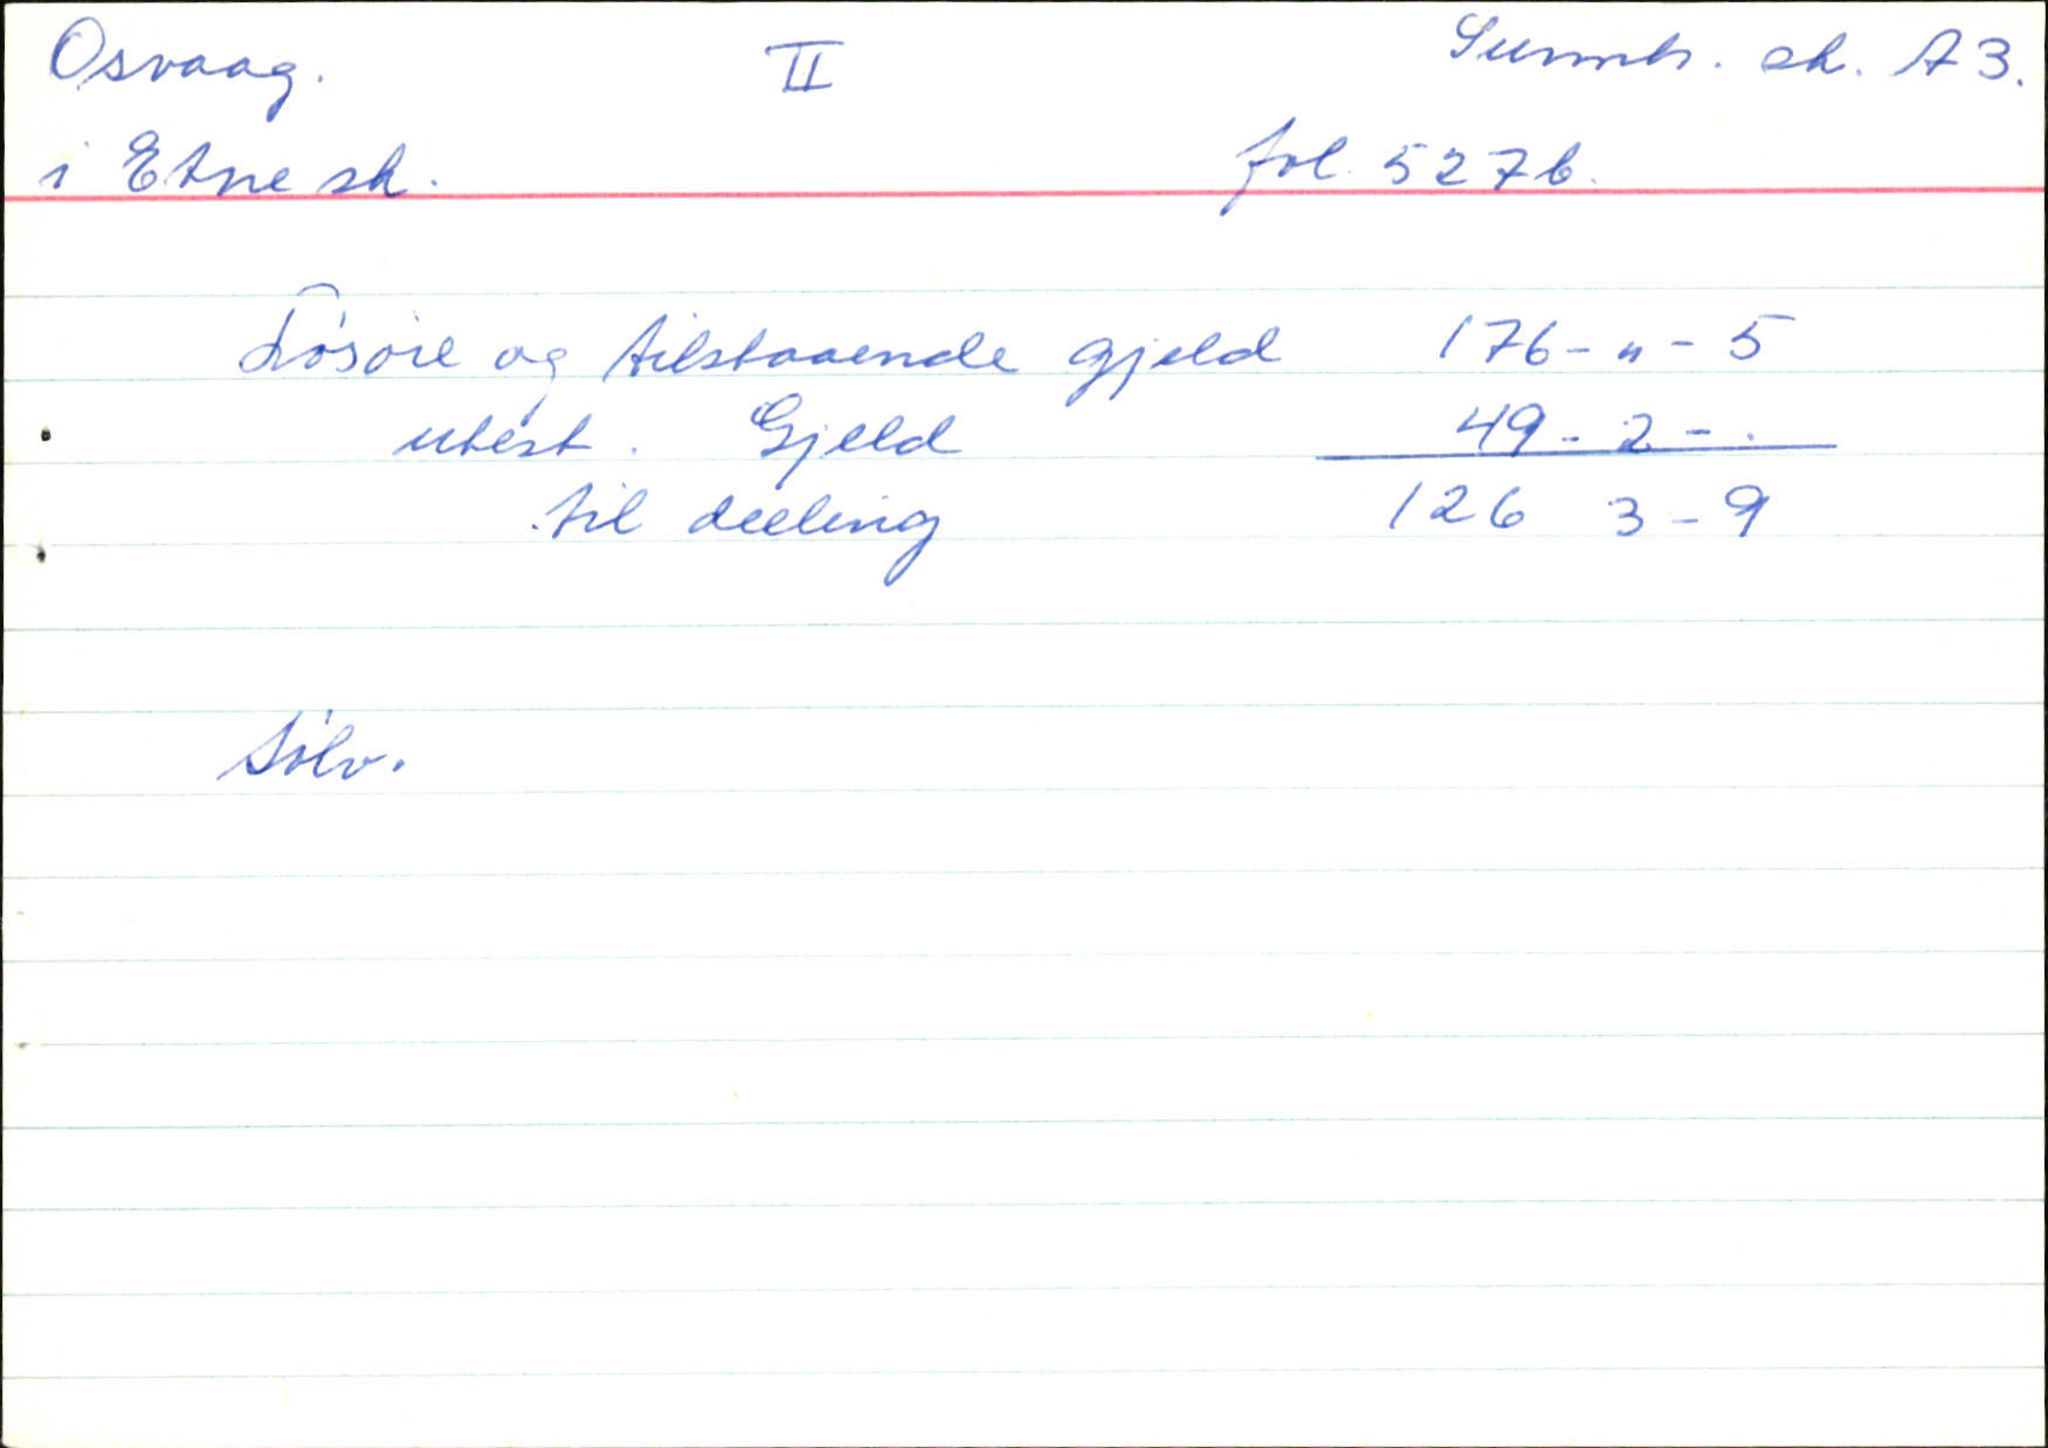 Osvaag. II Sunnh. sk. A 3.
i Etne sk. fol. 527b.
Løsøre og tilstaaende gjeld 176 - " - 5
utest. Gjeld 49 - 2 - .
til deeling 126 3 - 9
Sølv.